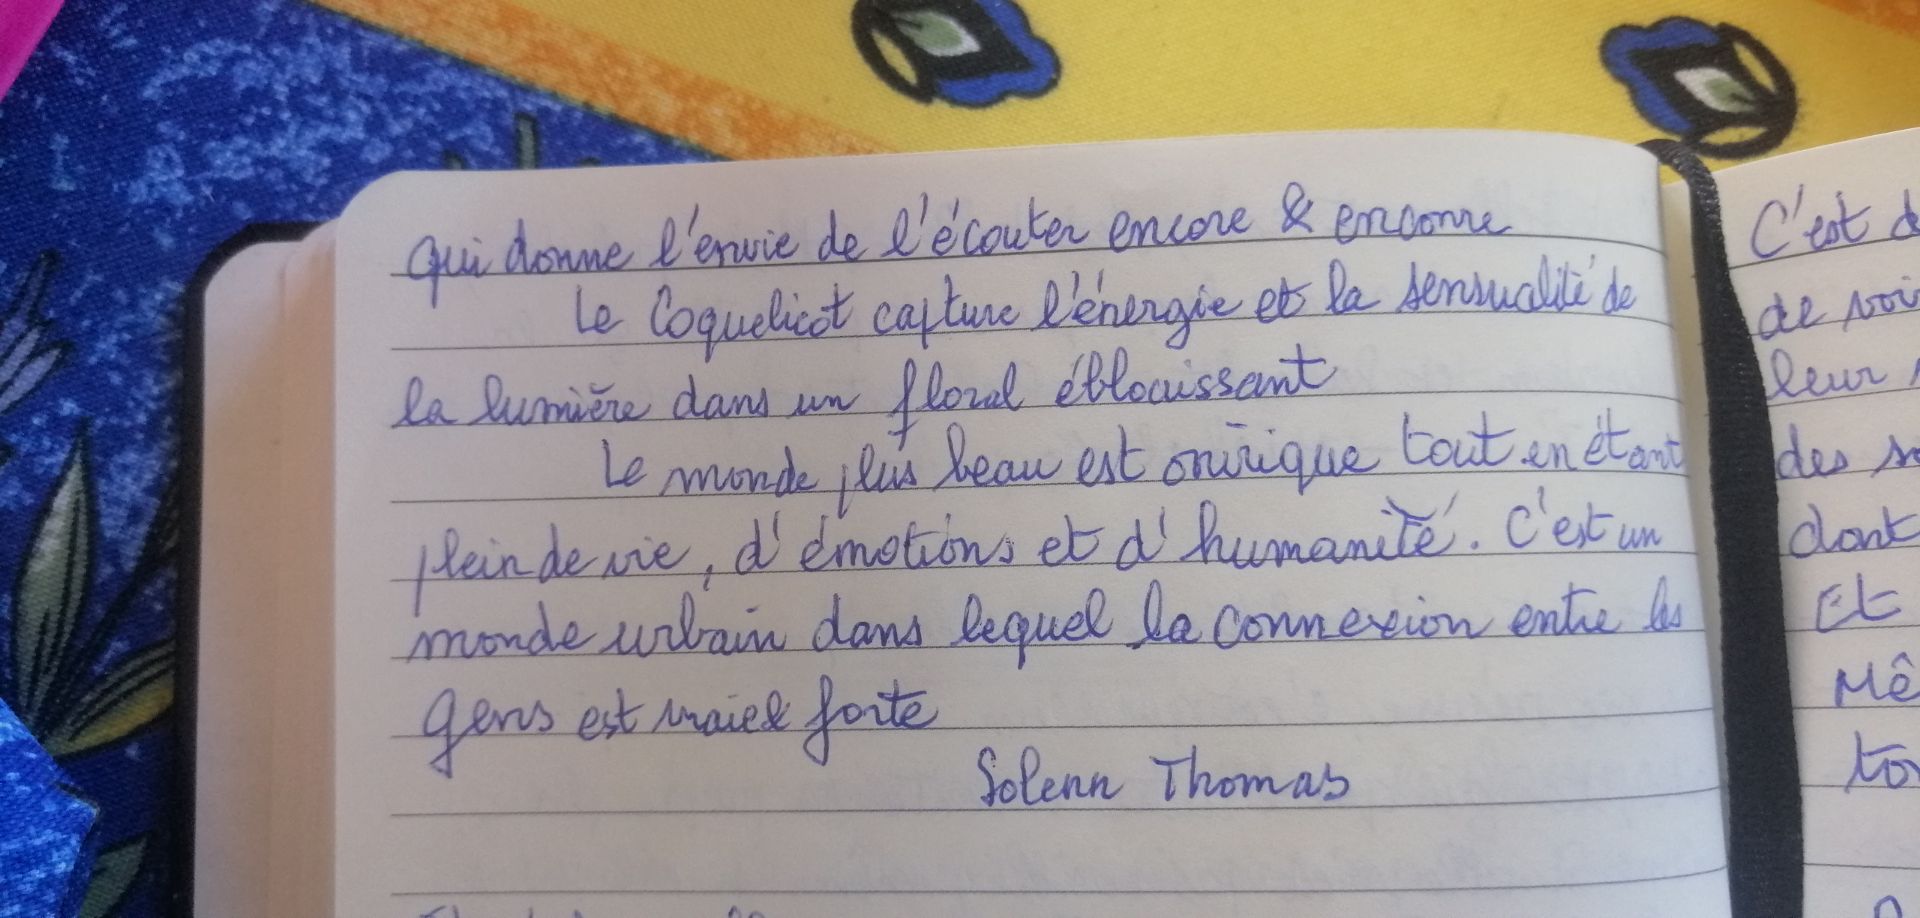 qui donne l'envie de l'écouter encore & enconre
Le Coquelicot capture l'énergie et la sensualité de
la lumière dans un floral éblouissant
Le monde plus beau est onirique tout en étant
plein de vie, d'émotions et d'humanité. C'est un
monde urbain dans lequel la connexion entre les
gens est vraie & forte
Solenn Thomas
C'est d
de voir
leur
des
dont
Et
Mê
to